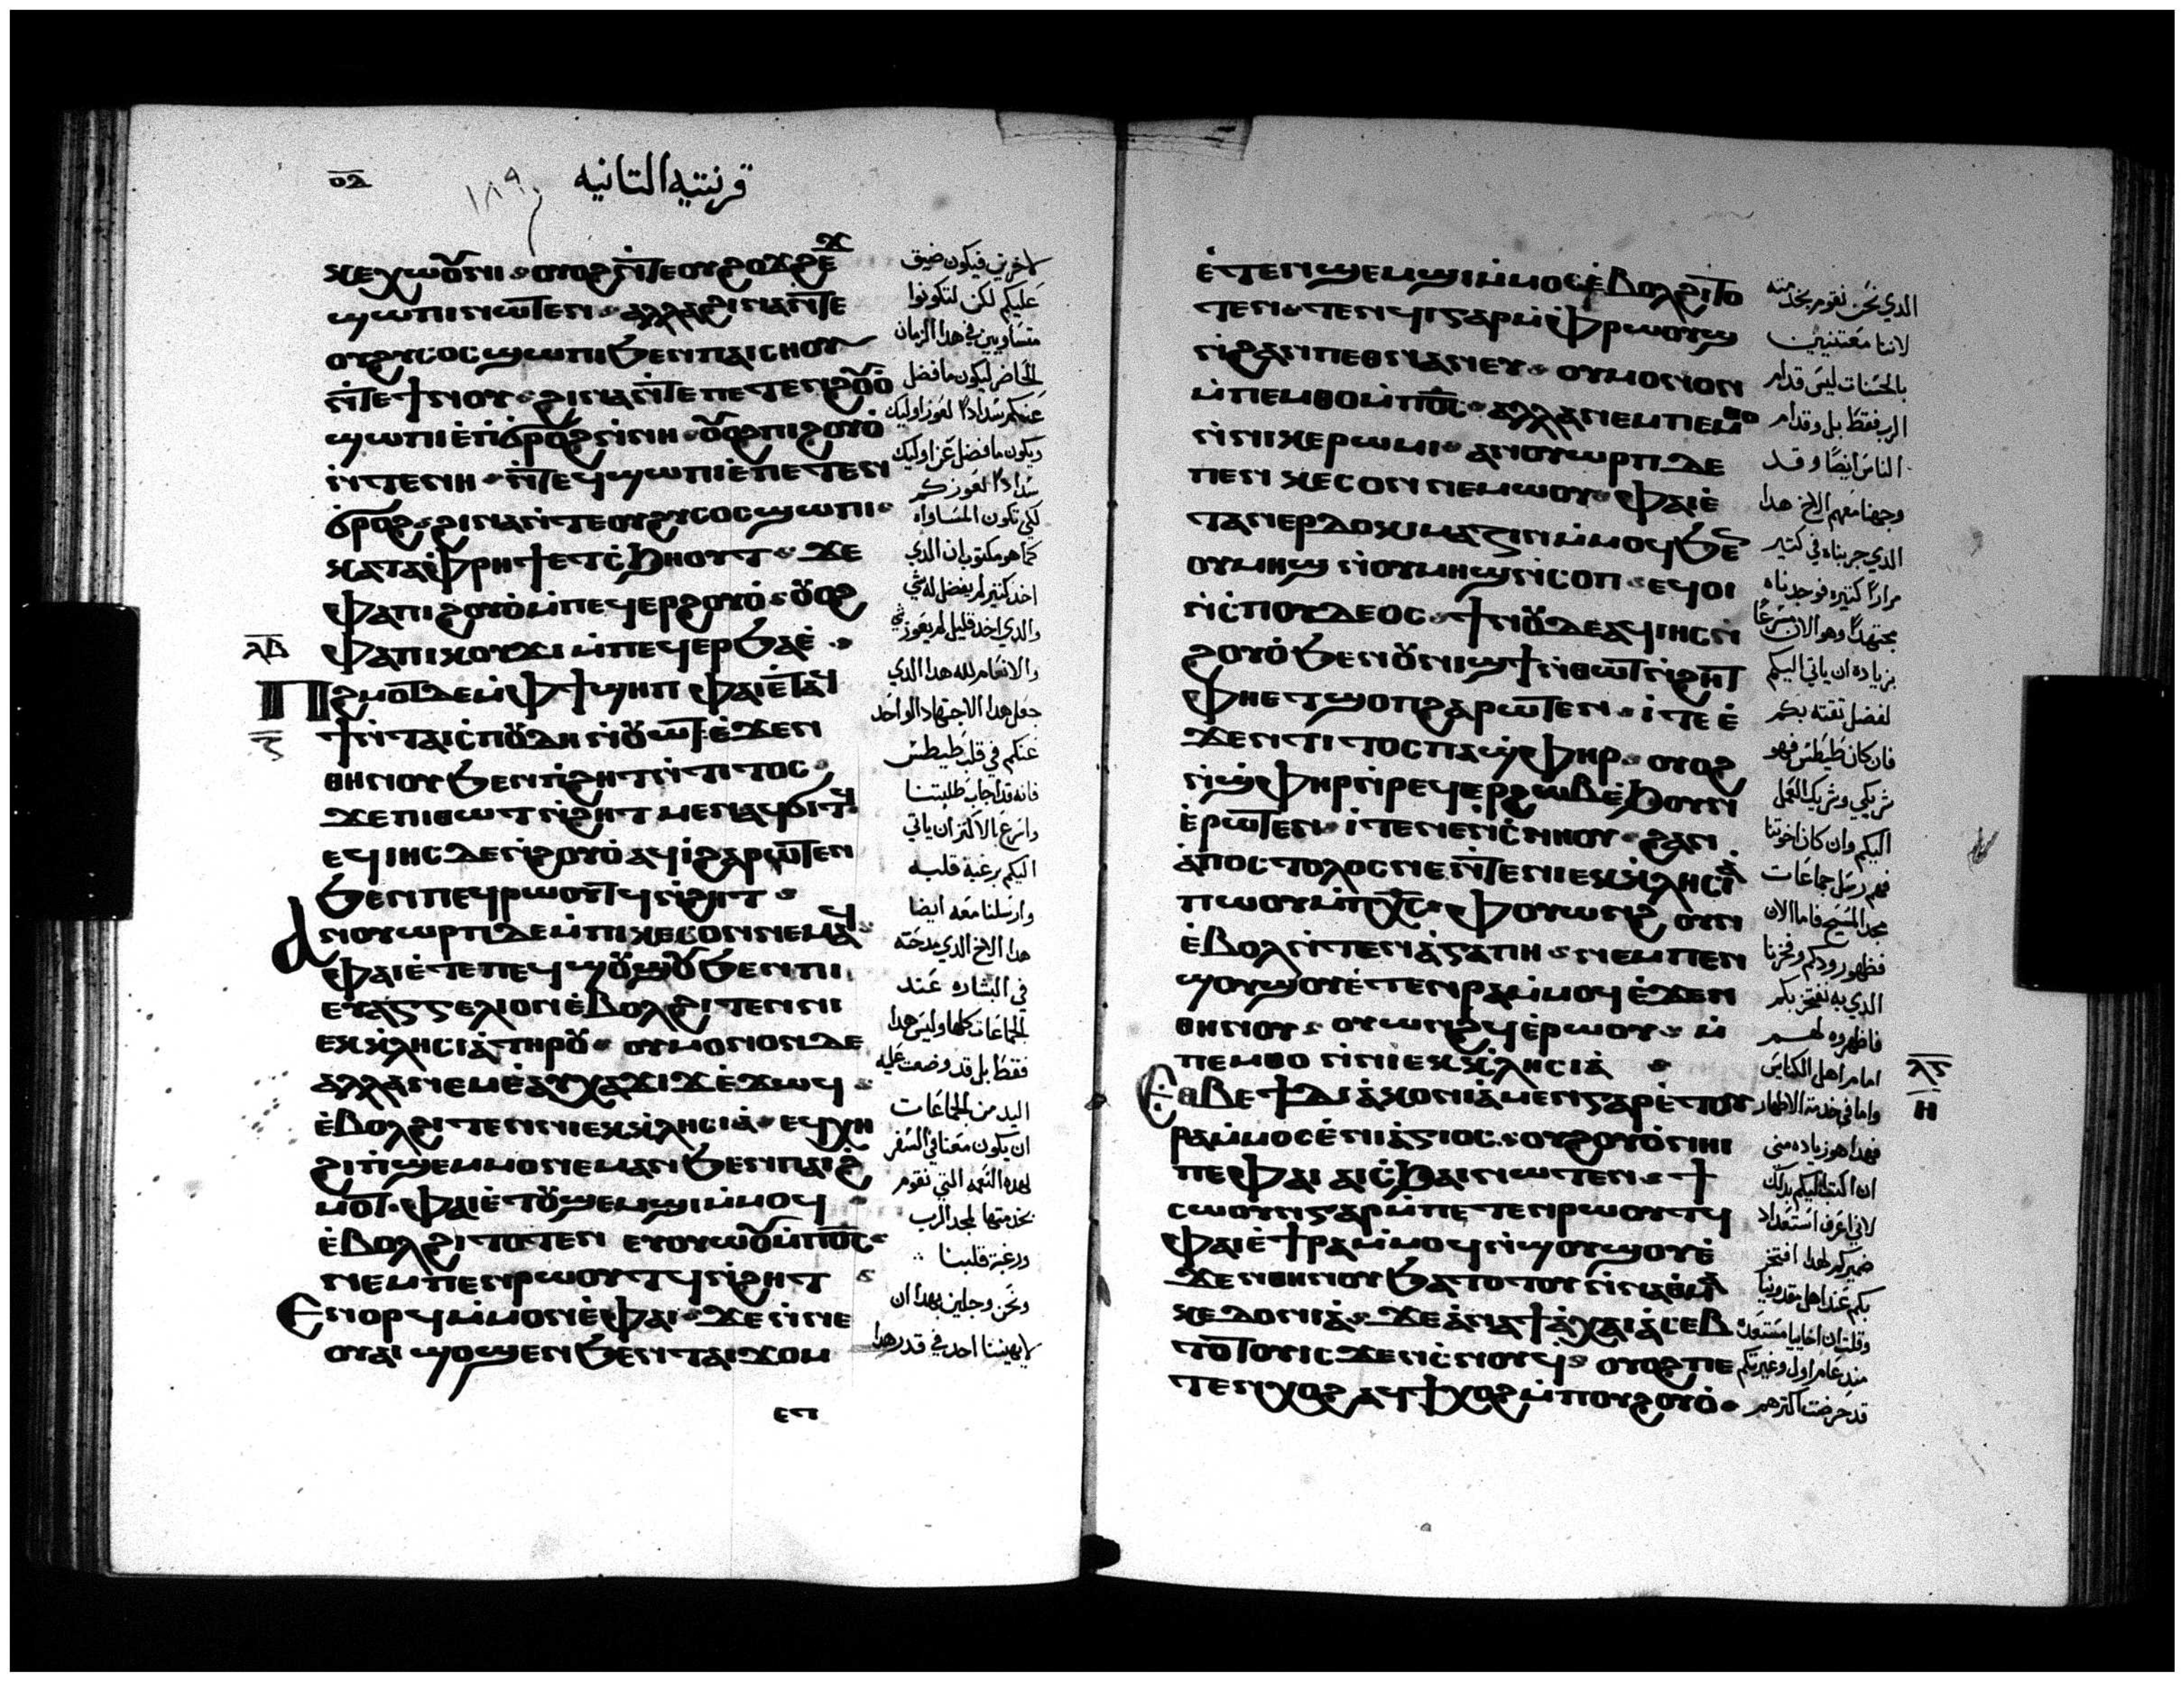 قرنتيه التانيه
١٨٩
ⲭⲉⲭⲱⲟⲩⲛⲓ ⲟⲩⲟϩ ⲛ̀ⲧⲉ ⲟⲩϩⲟϫϩⲉϫ
ϣⲱⲡⲓ ⲛⲱⲧⲉⲛ ⲁⲗⲗⲁ ϩⲓⲛⲁ ⲛ̀ⲧⲉ
ⲟⲩϩⲩⲥⲟⲥ ϣⲱⲡⲓ ϧⲉⲛ ⲡⲁⲓⲥⲏⲟⲩ
ⲛ̀ⲧⲉ ϯⲛⲟⲩ ϩⲓⲛⲁ ⲛ̀ⲧⲉ ⲡⲉⲧⲉⲛϩⲟⲩⲟ̀
ϣⲱⲡⲓ ⲉ̀ⲡϭⲣⲟϩ ⲛ̀ⲛⲏ ⲟⲩⲟϩ ⲡⲓϩⲟⲩⲟ̀
ⲛ̀ⲧⲉⲛⲏ ⲛ̀ⲧⲉϥϣⲱⲡⲓ ⲉ̀ⲡⲉⲧⲉⲛ
ϭⲣⲟϩ ϩⲓⲛⲁ ⲛ̀ⲧⲉ ⲟⲩϩⲩⲥⲟⲥ ϣⲱⲡⲓ
ⲕⲁⲧⲁ ⲫ̀ⲣⲏϯ ⲉⲧⲥ̀ϧⲏⲟⲩⲧ ϫⲉ
ⲫⲁ ⲡⲓϩⲟⲩⲟ̀ ⲙ̀ⲡⲉϥⲉⲣϩⲟⲩⲟ̀ ⲟⲩⲟϩ
ⲫⲁ ⲡⲓⲕⲟⲩϫⲓ ⲙ̀ⲡⲉϥⲉⲣϧⲁⲉ̀
ⲗⲃ
Ⲡϩⲙⲟⲧ ⲇⲉ ⲙ̀ⲫϯ ϣⲏⲡ ⲫⲁⲓ ⲉ̀ⲧⲁϥ
ⲍ
ϯ ⲛ̀ⲧⲁⲓⲥ̀ⲡⲟⲩⲇⲏ ⲛ̀ⲟⲩⲱⲧ ⲉ̀ϫⲉⲛ
ⲑⲏⲛⲟⲩ ϧⲉⲛ ⲡ̀ϩⲏⲧ ⲛ̀ⲧⲓⲧⲟⲥ
ϫⲉ ⲡⲓⲑⲱⲧ ⲛ̀ϩⲏⲧ ⲙⲉⲛ ⲁϥϭⲓⲧϥ
ⲉϥⲓⲏⲥ ⲇⲉ ⲛ̀ϩⲟⲩⲟ̀ ⲁϥⲓ̀ ϩⲁⲣⲱⲧⲉⲛ
ϧⲉⲛ ⲡⲉϥⲣⲱⲟⲩⲧϥ ⲛ̀ϩⲏⲧ
Ⲁⲛⲟⲩⲱⲣⲡ ⲇⲉ ⲙ̀ⲡⲓⲕⲉⲥⲟⲛ ⲛⲉⲙⲁϥ
ⲫⲁⲓ ⲉ̀ⲧⲉ ⲡⲉϥϣⲟⲩϣⲟⲩ ϧⲉⲛ ⲡⲓ
ⲉⲩⲁⲅⲅⲉⲗⲓⲟⲛ ⲉ̀ⲃⲟⲗϩⲓⲧⲉⲛ ⲛⲓ
ⲉⲕⲕⲗⲏⲥⲓⲁ̀ ⲧⲏⲣⲟⲩ ⲟⲩⲙⲟⲛⲟⲛ ⲇⲉ
ⲁⲗⲗⲁ ⲛⲉⲙ ⲉ̀ⲁⲩⲭⲁϫⲓϫ ⲉ̀ϫⲱϥ
ⲉ̀ⲃⲟⲗϩⲓⲧⲉⲛ ⲛⲓⲉⲕⲕⲗⲏⲥⲓⲁ̀ ⲉϥⲭⲏ
ϩⲓ ⲡ̀ϣⲉⲙⲙⲟ ⲛⲉⲙⲁⲛ ϧⲉⲛ ⲡⲁⲓϩ
ⲙⲟⲧ ⲫⲁⲓ ⲉ̀ⲧⲟⲩϣⲉⲙϣⲓ ⲙ̀ⲙⲟϥ
ⲉ̀ⲃⲟⲗϩⲓⲧⲟⲧⲉⲛ ⲉⲩⲟⲩⲱⲟⲩ ⲙ̀ⲡⲟ̅ⲥ̅
ⲛⲉⲙ ⲡⲉⲛⲣⲱⲟⲩⲧϥ ⲛ̀ϩⲏⲧ
Ⲉⲛϩⲟⲣϥ ⲙ̀ⲙⲟⲛ ⲉ̀ⲫⲁⲓ ϫⲉ ⲛ̀ⲛⲉ
ⲟⲩⲁⲓ ϣⲟϣⲉⲛ ϧⲉⲛ ⲧⲁⲓϫⲟⲙ
لاخرين فيكون ضيق
عليكم لكن لتكونوا
متساويين في هدا الزمان
الحاضر ليكون ما فضل
عنكم سدادا لعوز اوليك
ويكون ما فضل عن اوليك
سدادا لعوزكم
لكي تكون المساواه
كما هو مكتوب ان الدي
اخد كتير لم يفضل له شي
والدي اخد قليل لم يعوز شي
والانعام لله هدا الدي
جعل هدا الاجتهاد الواحد
عنكم في قلب طيطس
فانه قد اجاب طلبتنا
واسرع بالاكتر ان ياتي
اليكم برغبة قلبه
وارسلنا معه ايضا
هدا الاخ الدي مدحته
في البشاره عند
الجماعات كلها وليس هدا
فقط بل قد وضعت عليه
اليد من الجماعات
ان يكون معنا في السفر
لهده النعمه التي نقوم
بخدمتها لمجد الرب
ورغبة قلبنا
ونحن وجلين بهدا ان
لا يهيننا احد في قدر هدا
ⲉⲡ
ⲉ̀ⲧⲉⲛϣⲉⲙϣⲓ ⲙ̀ⲙⲟⲥ ⲉ̀ⲃⲟⲗϩⲓⲧⲟ
ⲧⲉⲛ ⲧⲉⲛϥⲓ ⲅⲁⲣ ⲙ̀ⲫ̀ⲣⲱⲟⲩϣ
ⲛ̀ϩⲁⲛⲡⲉⲑⲛⲁⲛⲉⲩ ⲟⲩⲙⲟⲛⲟⲛ
ⲙ̀ⲡⲉⲙⲑⲟ ⲙ̀ⲡⲟ̅ⲥ̅ ⲁⲗⲗⲁ ⲛⲉⲙ ⲡⲉⲙⲑⲟ
ⲛ̀ⲛⲓⲕⲉⲣⲱⲙⲓ ⲁⲛⲟⲩⲱⲣⲡ ⲇⲉ
ⲡⲉⲛⲕⲉⲥⲟⲛ ⲛⲉⲙⲱⲟⲩ ⲫⲁⲓ ⲉ̀
ⲧⲁⲛⲉⲣⲇⲟⲕⲓⲙⲁⲍⲓⲛ ⲙ̀ⲙⲟϥ ϧⲉⲛ
ⲟⲩⲙⲏϣ ⲛ̀ⲟⲩⲙⲏϣ ⲛ̀ⲥⲟⲡ ⲉϥⲟⲓ
ⲛ̀ⲥ̀ⲡⲟⲩⲇⲉⲟⲥ ϯⲛⲟⲩ ⲇⲉ ⲁϥⲓⲏⲥ ⲛ̀
ϩⲟⲩⲟ̀ ϧⲉⲛ ⲟⲩⲛⲓϣϯ ⲛ̀ⲑⲱⲧ ⲛ̀ϩⲏⲧ
ⲫⲏⲉⲧϣⲟⲡ ϩⲁⲣⲱⲧⲉⲛ ⲓⲧⲉ ⲉ̀
ϫⲉⲛ ⲧⲓⲧⲟⲥ ⲡⲁϣ̀ⲫⲏⲣ ⲟⲩⲟϩ
ⲛ̀ϣ̀ⲫⲏⲣ ⲛ̀ⲣⲉϥⲉⲣϩⲱⲃ ⲉ̀ϧⲟⲩⲛ
ⲉ̀ⲣⲱⲧⲉⲛ ⲓⲧⲉ ⲛⲉⲛⲥ̀ⲛⲏⲟⲩ ϩⲁⲛ
ⲁ̀ⲡⲟⲥⲧⲟⲗⲟⲥ ⲛⲉ ⲛ̀ⲧⲉ ⲛⲓⲉⲕⲕⲗⲏⲥⲓⲁ̀
ⲡⲱⲟⲩ ⲙ̀ⲡⲭ̅ⲥ̅ ⲫ̀ⲟⲩⲱⲛϩ ⲟⲩⲛ
ⲉ̀ⲃⲟⲗ ⲛ̀ⲧⲉⲛⲁ̀ⲅⲁⲡⲏ ⲛⲉⲙ ⲡⲉⲛ
ϣⲟⲩϣⲟⲩ ⲉ̀ⲧⲉⲛⲣⲁ ⲙ̀ⲙⲟϥ ⲉ̀ϫⲉⲛ
ⲑⲏⲛⲟⲩ ⲟⲩⲱⲛϩϥ ⲉ̀ⲣⲱⲟⲩ ⲙ̀
ⲡⲉⲙⲑⲟ ⲛ̀ⲛⲓⲉⲕⲕⲗⲏⲥⲓⲁ̀
ⲗⲅ
Ⲉⲑⲃⲉ ϯⲇⲓⲁ̀ⲕⲟⲛⲓⲁ̀ ⲙⲉⲛ ⲅⲁⲣ ⲉ̀ⲧⲟⲩ
ⲏ
ⲣⲁ ⲙ̀ⲙⲟⲥ ⲉ̀ⲛⲓⲁ̀ⲅⲓⲟⲥ ⲟⲩϩⲟⲩⲟ̀ ⲛⲏⲓ
ⲡⲉ ⲫⲁⲓ ⲁⲓⲥ̀ϧⲁⲓ ⲛⲱⲧⲉⲛ ϯ
ⲥⲱⲟⲩⲛ ⲅⲁⲣ ⲙ̀ⲡⲉⲧⲉⲛⲣⲱⲟⲩⲧϥ
ⲫⲁⲓ ⲉ̀ϯⲣⲁ ⲙ̀ⲙⲟϥ ⲛ̀ϣⲟⲩϣⲟⲩ ⲉ̀
ϫⲉⲛ ⲑⲏⲛⲟⲩ ϧⲁⲧⲟⲧⲟⲩ ⲛ̀ⲛⲁ ⲑⲙⲁ
ⲕⲉⲇⲟⲛⲓⲁ̀ ϫⲉ ⲁ̀ⲛⲁ ϯⲁ̀ⲭⲁⲓⲁ̀ ⲥⲉⲃ
ⲧⲟⲧⲟⲩ ⲓⲥϫⲉⲛ ⲥ̀ⲛⲟⲩϥ ⲟⲩⲟϩ ⲡⲉ
ⲧⲉⲛⲭⲟϩ ⲁϥϯⲭⲟϩ ⲙ̀ⲡⲟⲩϩⲟⲩⲟ̀
الدي نحن نقوم بخدمته
لاننا معتنيين
بالحسنات ليس قدام
الرب فقط بل وقدام
الناس ايضا وقد
وجهنا معهم الاخ هدا
الدي جربناه في كتير
مرارا كتيره فوجدناه
مجتهدا وهو الان مسرعا
بزياده ان ياتي اليكم
لفضل تقته بكم
فان كان طيطس فهو
شريكي وشريك العمل
اليكم وان كان اخوتنا
فهم رسل جماعات
مجد المسيح فاما الان
فظهور ودكم وفخرنا
الدي به نفتخر بكم
فاظهروه لهم
امام اهل الكنايس
واما في خدمة الاطهار
فهدا هو زياده مني
ان اكتب اليكم بدلك
لاني اعرف استعداد
ضميركم لهدا افتخر
بكم عند اهل مقدونيا
وقلت ان اخاييا مستعده
مند عام اول وغيرتكم
قد حرضت اكترهم